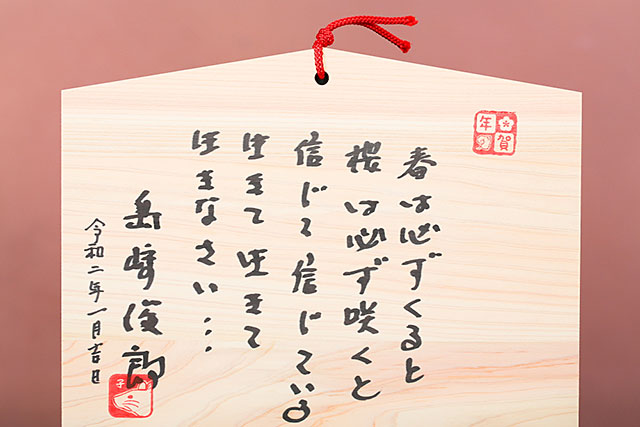 賀年
春は必ずくると
桜は必ず咲くと
信じて信じている
生きて生きて
生きなさい…
島崎俊郎
令和二年一月吉日
子